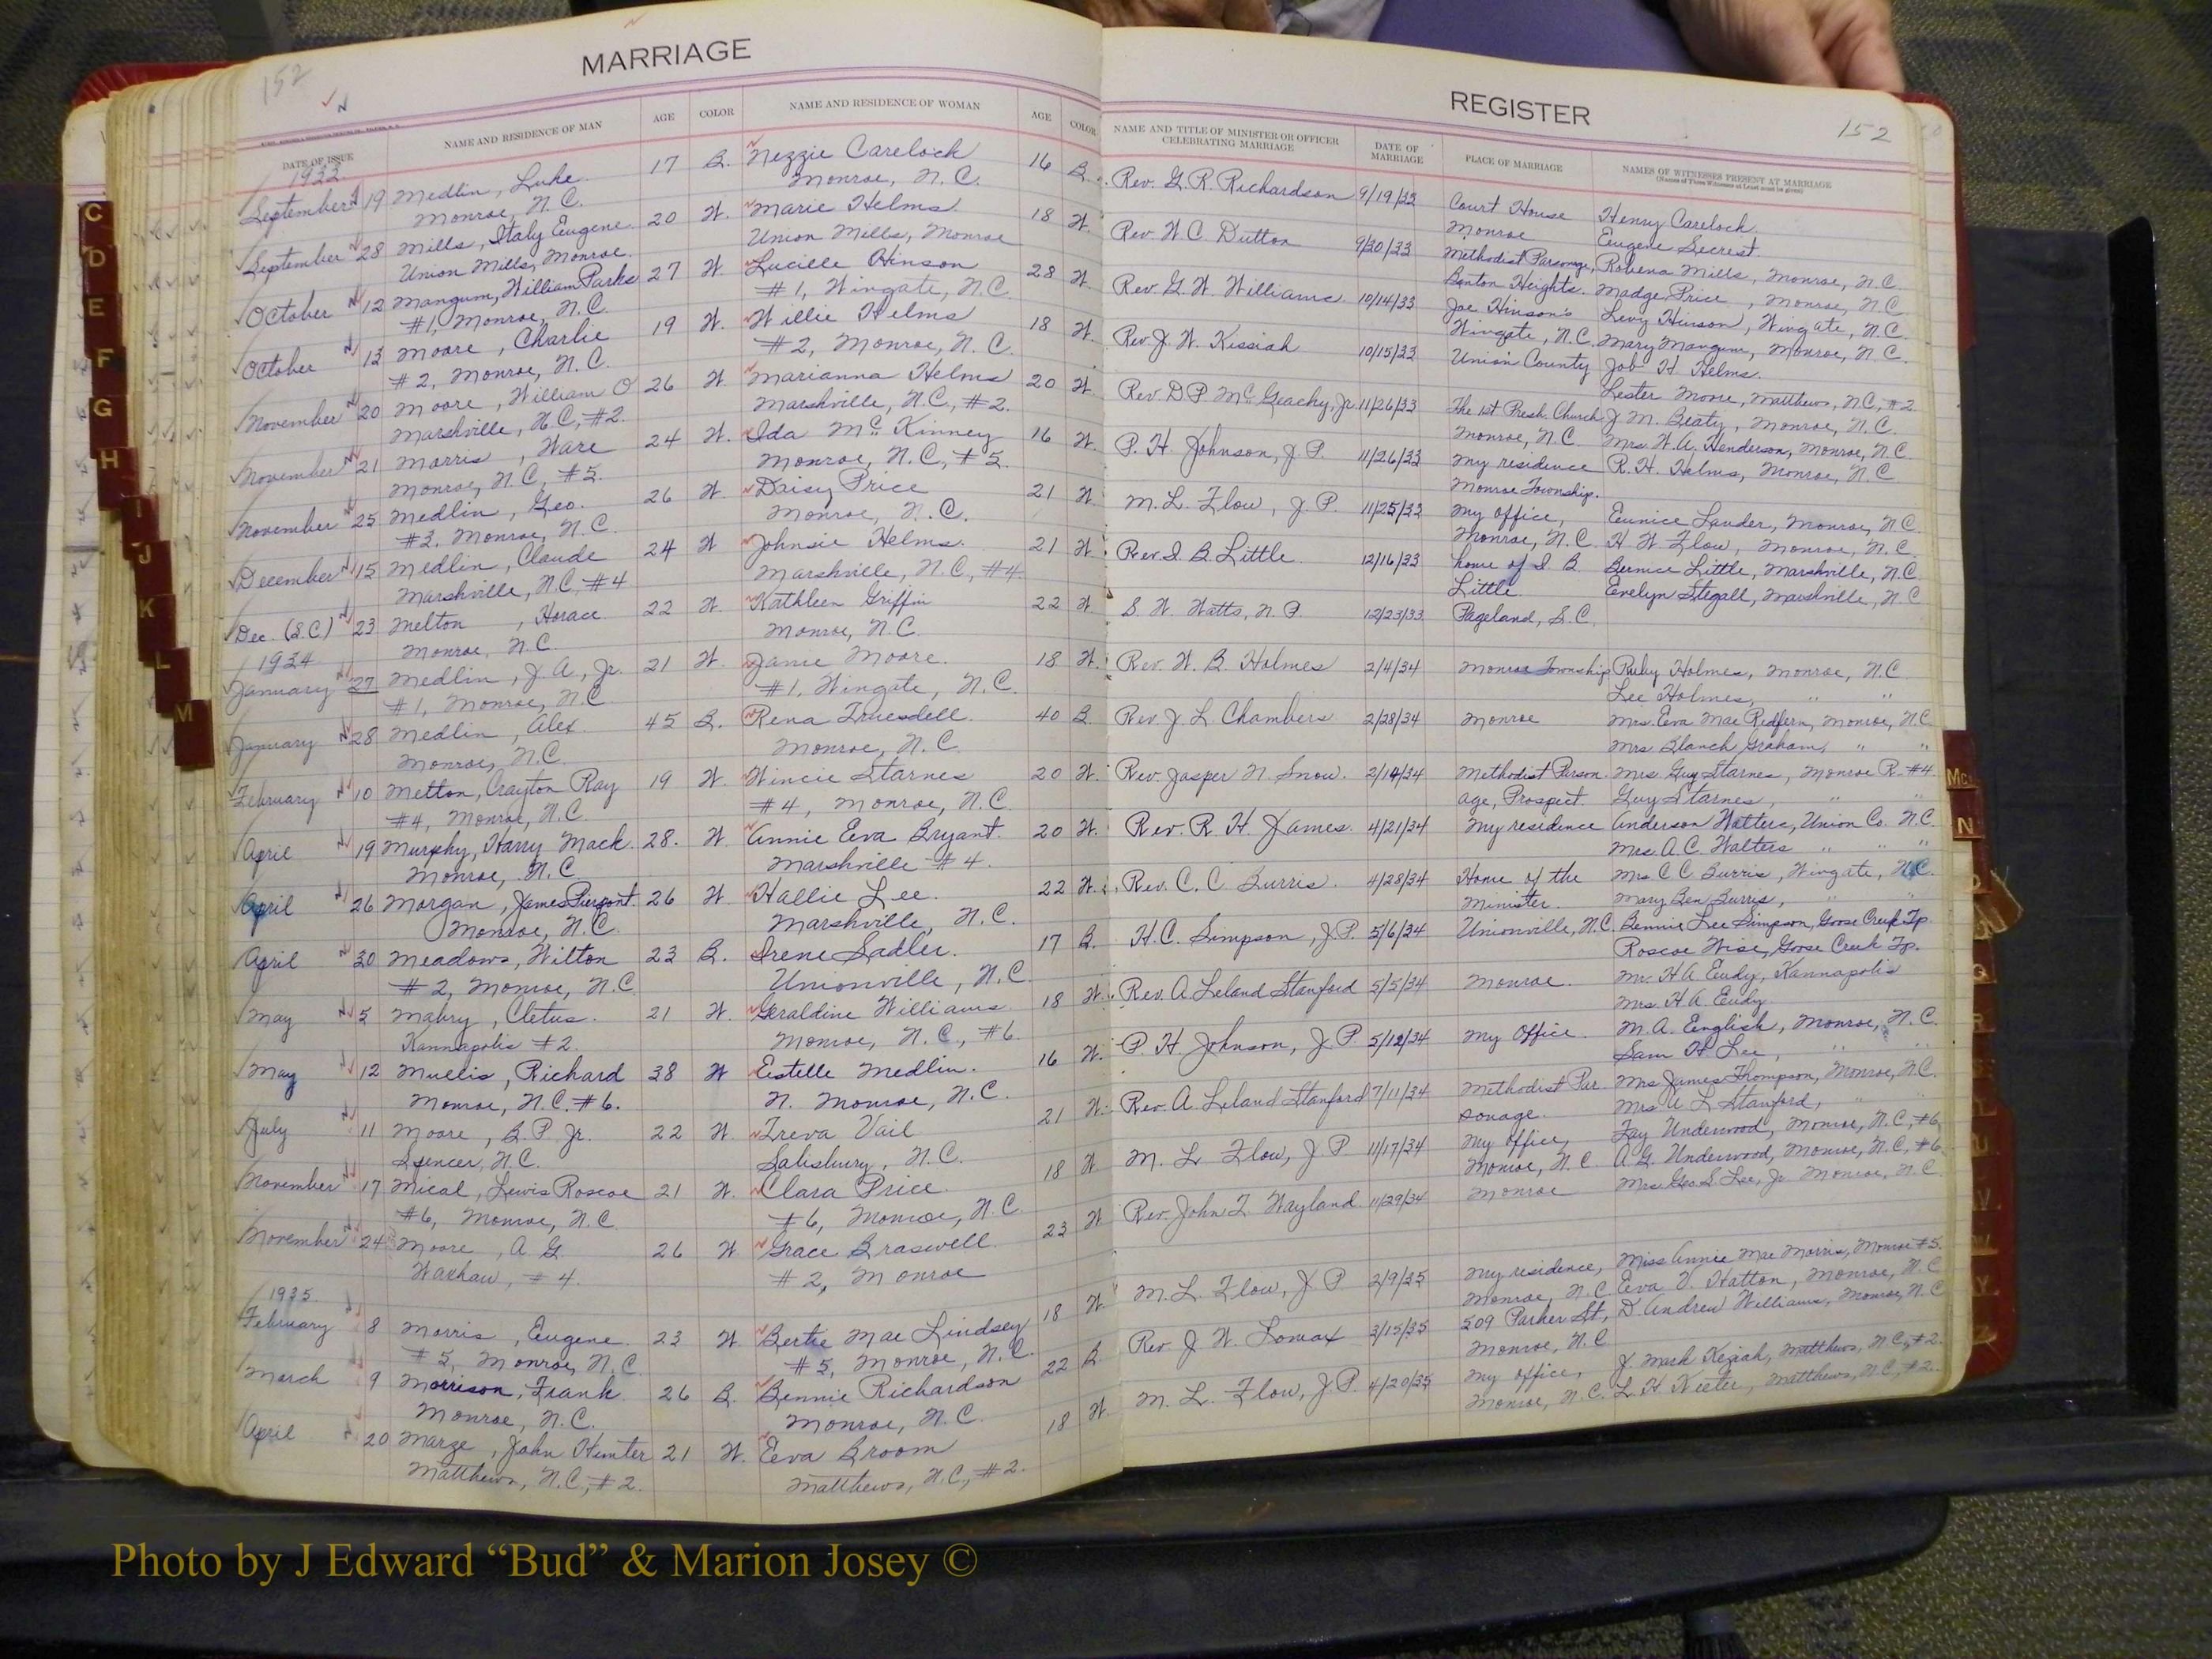 152
MARRIAGE
DATE OF ISSUE NAME AND RESIDENCE OF MAN AGE COLOR NAME AND RESIDENCE OF WOMAN AGE COLOR
1933
September 19 Medlin, Luke 17 B. Nezzie Carelock 16 B.
Monroe, N.C. Monroe, N.C.
September 28 Mills, Italy Eugene 20 W. Marie Helms 18 W.
Union Mills, Monroe. Union Mills, Monroe
October 12 Mangum, William Parks 27 W Lucille Hinson 28 W.
#1, Monroe, N.C. #1, Wingate, N.C.
October 13 Moore, Charlie 19 W. Willie Helms 18 W.
#2, Monroe, N.C. #2, Monroe, N.C.
November 20 Moore, William O 26 W. Marianna Helms 20 W.
Marshville, N.C., #2. Marshville, N.C., #2.
November 21 Morris, Ware 24 W. Ida McKinney 16 W.
Monroe, N.C., #5. Monroe, N.C., #5.
November 25 Medlin, Geo. 26 W. Daisy Price 21 W.
#3, Monroe, N.C. Monroe, N.C.
December 15 Medlin, Claude 24 W Johnsie Helms. 21 W
Marshville, N.C., #4 Marshville, N.C., #4
Dec. (S.C.) 23 Melton, Horace 22 W. Kathleen Griffin 22 W.
Monroe, N.C. Monroe, N.C.
1934
January 27 Medlin, J. A., Jr. 21 W. Janie Moore. 18 W.
#1, Monroe, N.C. #1, Wingate, N.C.
January 28 Medlin, Alex. 45 B. Rena Truesdell. 40 B.
Monroe, N.C. Monroe, N.C.
February 10 Melton, Crayton Ray 19 W. Wincie Starnes 20 W.
#4, Monroe, N.C. #4, Monroe, N.C.
April 19 Murphy, Harry Mack. 28. W. Annie Eva Bryant. 20 W.
Monroe, N.C. Marshville #4.
April 26 Morgan, James Pierpont. 26 W. Hallie Lee. 22 W.
Monroe, N.C. Marshville, N.C.
April 30 Meadows, Wilton 23 B. Irene Sadler. 17 B.
#2, Monroe, N.C. Unionville, N.C.
May 5 Mabry, Cletus. 21 W. Geraldine Williams 18 W.
Kannapolis #2. Monroe, N.C., #6.
May 12 Mullis, Richard 38 W Estelle Medlin. 16 W.
Monroe, N.C. #6. N. Monroe, N.C.
July 11 Moore, B. P. Jr. 22 W. Treva Vail 21 W.
Spencer, N.C. Salisbury, N.C.
November 17 Mical, Lewis Roscoe 21 W. Clara Price. 18 W
#6, Monroe, N.C. #6, Monroe, N.C.
November 24 Moore, A G. 26 W. Grace Braswell. 23 W
Waxhaw, #4. #2, Monroe
1935.
February 8 Morris, Eugene 23 W. Bertie Mae Lindsey 18 W.
#5, Monroe, N.C. #5, Monroe, N.C.
March 9 Morrison, Frank 26 B. Bennie Richardson 22 B.
Monroe, N.C. Monroe, N.C.
April 20 Marze, John Hunter 21 W. Eva Broom 18 W.
Matthews, N.C., #2. Matthews, N.C., #2.
REGISTER
152
NAME AND TITLE OF MINISTER OR OFFICER CELEBRATING MARRIAGE DATE OF MARRIAGE PLACE OF MARRIAGE NAMES OF WITNESSES PRESENT AT MARRIAGE
(Names of Three Witnesses at Least must be given)
Rev. G. R. Richardson 9/19/33 Court House Henry Carelock
Monroe Eugene Secrest.
Rev. W. C. Dutton 9/30/33 Methodist Parsonage, Robena Mills, Monroe, N.C.
Benton Heights. Madge Price, Monroe, N.C.
Rev. G. W. Williams. 10/14/33 Joe Hinson's Levy Hinson, Wingate, N.C.
Wingate, N.C. Mary Mangum, Monroe, N.C.
Rev. J. W. Kissiah 10/15/33 Union County Job H Helms.
Lester Moore, Matthews, N.C., #2.
Rev. D. P. McGeachy, Jr. 11/26/33 The 1st Presh. Church J. M. Beaty, Monroe, N.C.
Monroe, N.C. Mrs. W. A. Henderson, Monroe, N.C.
P. H. Johnson, J. P. 11/26/33 My residence R. H. Helms, Monroe, N.C.
Monroe Township.
M. L. Flow, J. P. 11/25/33 My office, Eunice Lauder, Monroe, N.C.
Monroe, N.C. H. W. Flow, Monroe, N.C.
Rev. I. B. Little 12/16/33 home of I. B. Bernice Little, Marshville, N.C.
Little Evelyn Stegall, Marshville, N.C.
S. W. Watts, N. P. 12/23/33 Pageland, S.C.
Rev. W. B. Holmes 2/4/34 Monroe Township Ruby Holmes, Monroe, N.C.
Lee Holmes, " "
Rev. J. L. Chambers 2/28/34 Monroe Mrs. Eva Mae Redfern, Monroe, N.C.
Mrs. Blanch Graham, " "
Rev. Jasper N. Snow. 2/14/34 Methodist Parson- Mrs. Guy Starnes, Monroe R. #4.
age, Prospect. Guy Starnes, " "
Rev. R. H. James. 4/21/34 My residence Anderson Walters, Union Co. N.C.
Mrs. A. C. Walters " " "
Rev. C. C. Burris. 4/28/34 Home of the Mrs. C C Burris, Wingate, N.C.
Minister. Mary Ben Burris, " "
H. C. Simpson, J.P. 5/6/34 Unionville, N.C. Bennie Lee Simpson, Goose Creek Tp.
Roscoe Wise, Goose Creek Tp.
Rev. A. Leland Stanford 5/5/34 Monroe. Mr. H A. Eudy, Kannapolis
Mrs. H. A. Eudy
P. H. Johnson, J. P 5/12/34 My Office M. A. English, Monroe, N.C.
Sam H. Lee, " "
Rev. A. Leland Stanford 7/11/34 Methodist Par- Mrs James Thompson, Monroe, N.C.
sonage. Mrs. A L Stanford, " "
M. L. Flow, J. P. 11/17/34 My office, Fay Underwood, Monroe, N.C., #6,
Monroe, N.C. A. G. Underwood, Monroe, N.C., #6.
Rev. John T. Wayland. 11/29/34 Monroe Mrs. Geo. S. Lee, Jr. Monroe, N.C.
M. L. Flow, J. P. 2/9/35 My residence, Miss Annie Mae Morris, Monroe #5.
Monroe, N.C. Eva V. Hatton, Monroe, N.C.
Rev. J. W. Lomax 3/15/35 509 Parker St., D. Andrew Williams, Monroe, N.C.
Monroe, N.C.
M. L. Flow, J.P. 4/20/35 My office, J. Mark Keziah, Matthews, N.C., #2.
Monroe, N.C. L. H. Keeter, Matthews, N.C., #2.
C
D
E
F
G
H
I
J
K
L
M
Mc
N
Q
R
U
V
Y
Photo by J Edward “Bud” & Marion Josey ©